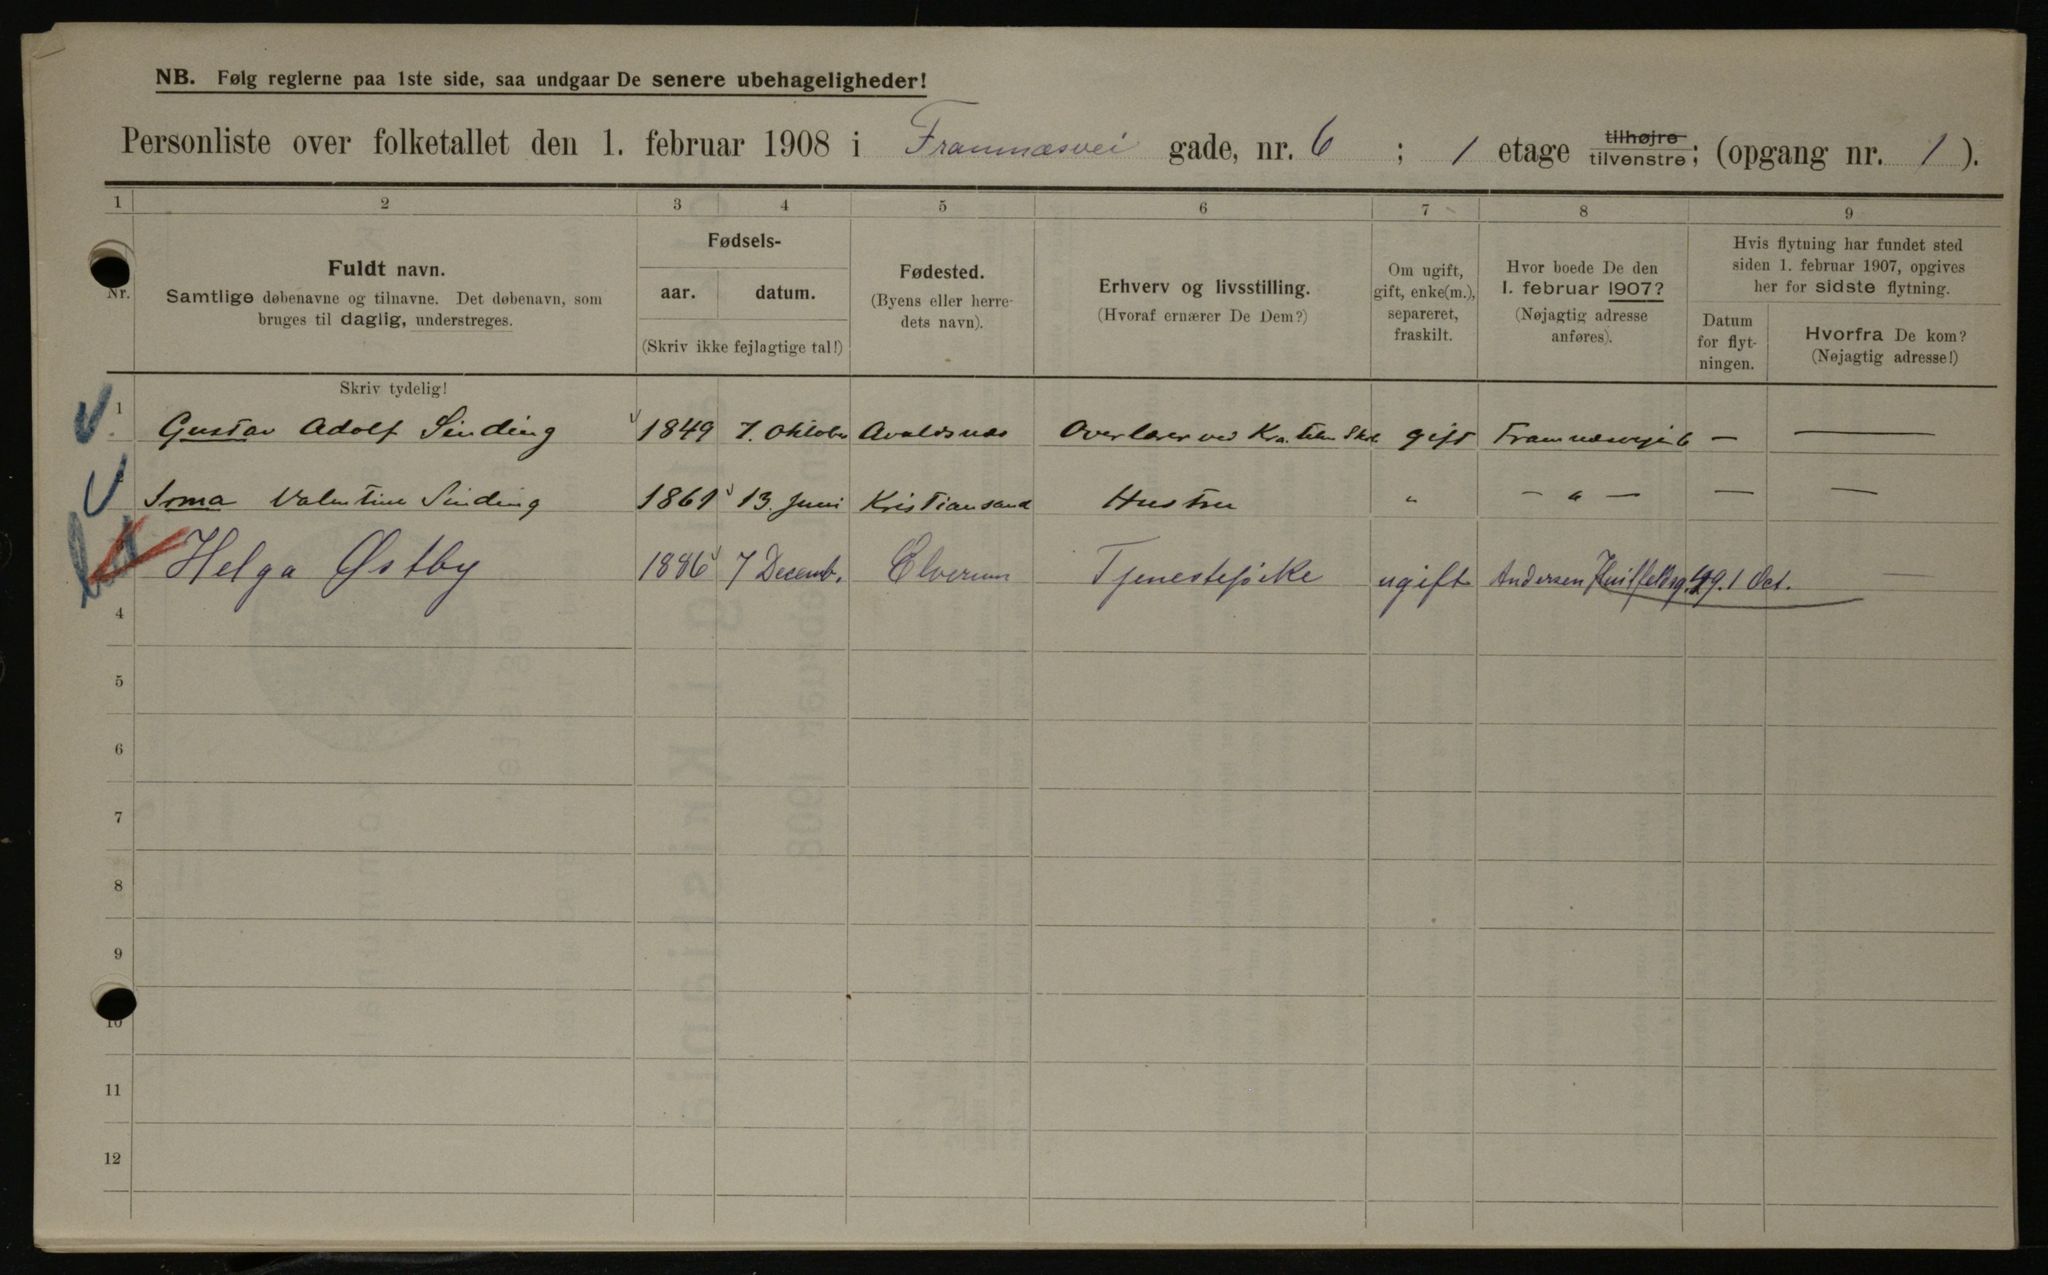 NB. Følg reglerne paa 1ste side, saa undgaar De senere ubehageligheder!
Personliste over folketallet den 1. februar 1908 i Framnæsvei gade, nr. 6 ; 1 etage tilhøjre tilvenstre; (opgang nr. 1 ).
1 2 3 4 5 6 7 8 9
Nr.
Fuldt navn.
Samtlige døbenavne og tilnavne. Det døbenavn, som
bruges til daglig, understreges.
Skriv tydelig!
Fødsels-
aar. datum.
(Skriv ikke fejlagtige tal!)
Fødested.
(Byens eller herre-
dets navn).
Erhverv og livsstilling.
(Hvoraf ernærer De Dem?)
Om ugift,
gift, enke(m.),
separeret,
fraskilt.
Hvor boede De den
1. februar 1907?
(Nøjagtig adresse
anføres).
Hvis flytning har fundet sted
siden 1. februar 1907, opgives
her for sidste flytning.
Datum
for flyt-
ningen.
Hvorfra De kom?
(Nøjagtig adresse!)
1 Gustav Adolf Sinding 1849 7. Oktober Avaldsnæs Overlærer ved Kra. tekn Skole gift Framnæsvejen 6 — —
Irma Valentine Sinding 1861 13. Juni Kristiansand Hustru " — " — — —
Helga Østby 1886 7 Decemb. Elverum Tjenestepike ugift Andersen Huitfeldsg. 49. 1 Oct. —
4
5
6
7
8
9
10
11
12